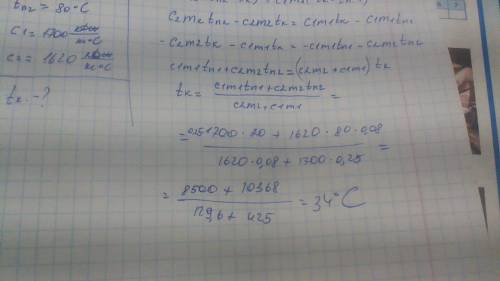 tn2 = 80°C
c1 = 1700
c2 = 1620
tк - ?
c2m2tn2 - c2m2tк = c1m1tк - c1m1tn1
- c2m2tк - c1m1tк = - c1m1tn1 - c2m2tn2
c1m1tn1 + c2m2tn2 = (c2m2 + c1m1) tк
tк = c1m1tn1 + c2m2tn2 / c2m2 + c1m1 =
= 0,25·1700 · 20 + 1620 · 80 · 0,08 / 1620 · 0,08 + 1700 · 0,25 =
= 8500 + 10368 / 129,6 + 425 = 34°C